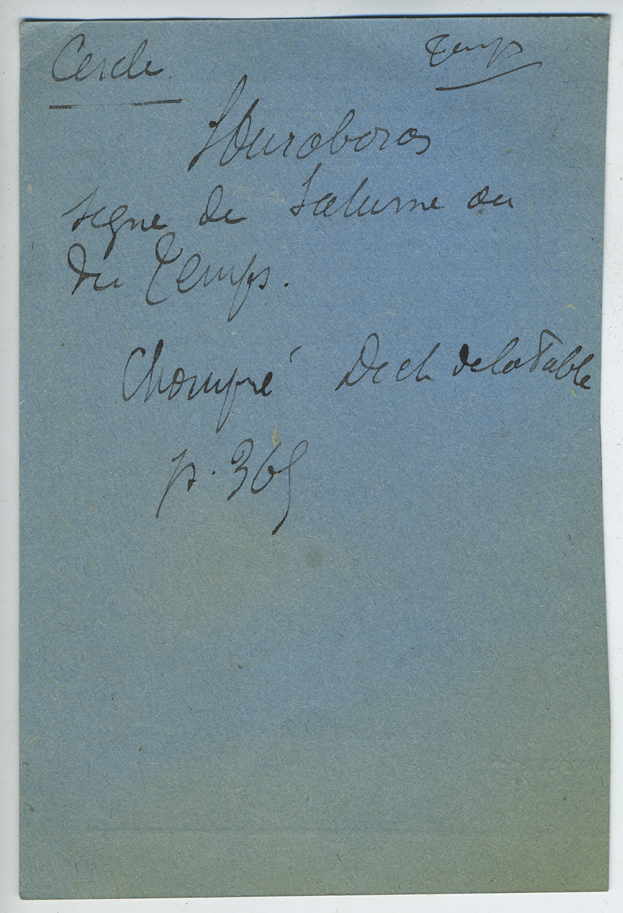 Cercle Temps
l'Ouroboros
signe de Saturne ou
du Temps.
Chompré Dict de la Fable
p. 365